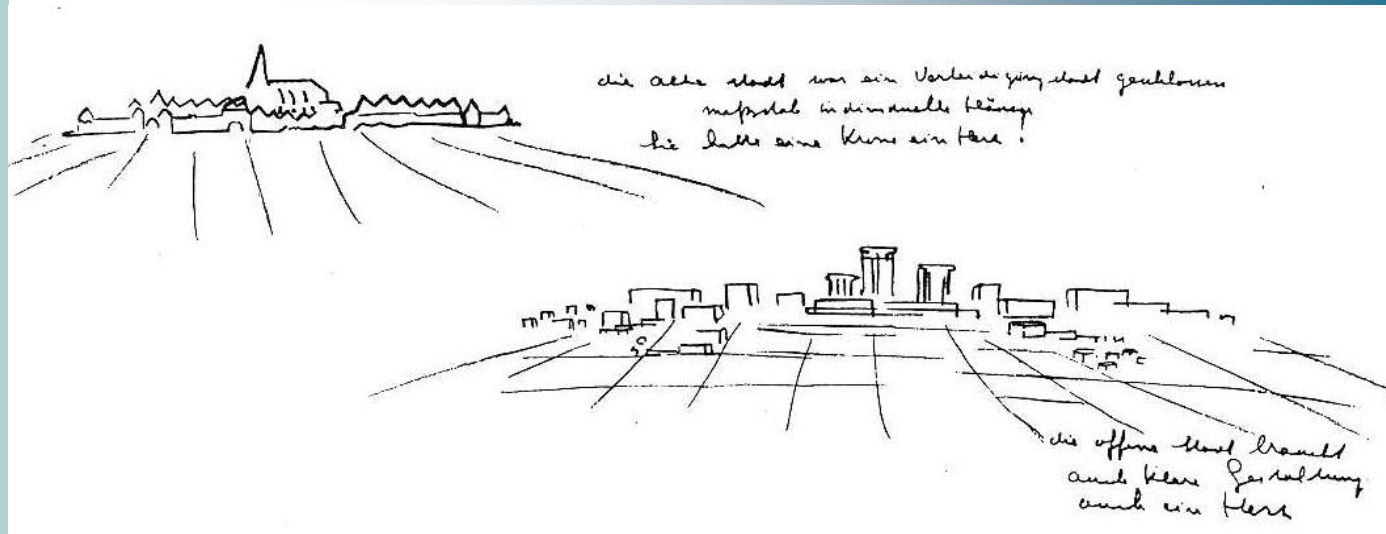 die alte stadt war ein Verteidigung stadt geschlossen
maßstab individuelle Häuser
sie hatte eine Krone ein Herz!
die offene stadt braucht
auch klare Gestaltung
auch ein Herz